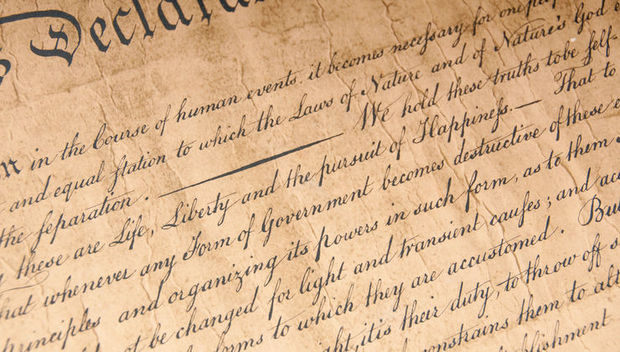 Declara
in the Course of human events, it becomes necessary for one peop
and equal station to which the Laws of Nature and of Nature's God e
the separation. — We hold these truths to be self-
these are Life, Liberty and the pursuit of Happiness. — That to
hat whenever any Form of Government becomes destructive of these e
principles and organizing its powers in such form, as to them
not be changed for light and transient causes; and acc
forms to which they are accustomed. But
ght, it is their duty, to throw off s
constrains them to alt
blishment